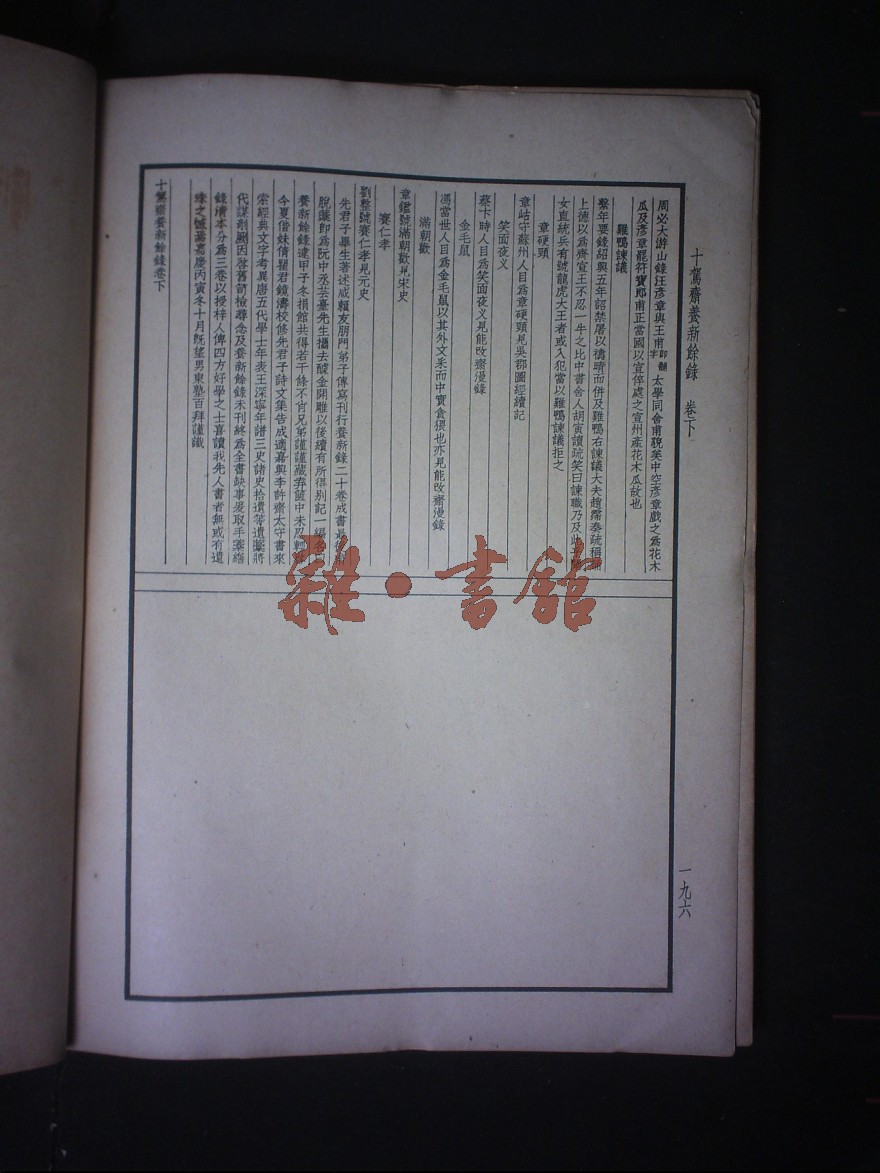 十駕齋養新餘錄 卷下
周必大游山錄汪彥章與王甫即黼字太學同舍甫貌美中空彥章戲之爲花木
瓜及彥章罷符寶郎甫正當國以宣倅處之宣州產花木瓜故也
雞鴨諫議
繫年要錄紹興五年詔禁屠以禱晴而併及雞鴨右諫議大夫趙霈奏疏稱
上德以爲齊宣王不忍一牛之比中書舍人胡寅讀疏笑曰諫職乃及此
女直統兵有號龍虎大王者或入犯當以雞鴨諫議拒之
章硬頸
章岵守蘇州人目爲章硬頸見吳郡圖經續記
笑面夜义
蔡卞時人目爲笑面夜义見能改齋漫錄
金毛鼠
馮當世人目爲金毛鼠以其外文采而中實貪猥也亦見能改齋漫錄
滿朝歡
章鑑號滿朝歡見宋史
賽仁孝
劉整號賽仁孝見元史
先君子畢生著述咸賴友朋門弟子傳寫刊行養新錄二十卷成書最後
脫藳即爲阮中丞芸臺先生攜去醵金開雕以後續有所得別記一編名曰
養新餘錄逮甲子冬捐館共得若干條不肖兄弟謹謹藏弆篋中未忍輒
今夏偕妹倩瞿君鏡濤校修先君子詩文集告成適嘉興李許齋太守書來
索經典文字考異唐五代學士年表王深寧年譜三史諸史拾遺等遺藳將
代謀剞劂因啓舊箭檢尋念及養新餘錄未刊終爲全書缺事爰取手藳繕
錄清本分爲三卷以授梓人俾四方好學之士喜讀我先人書者無或有遺
珠之憾焉嘉慶丙寅冬十月既望男東塾百拜謹識
十駕齋養新餘錄卷下
一九六
雜·書館